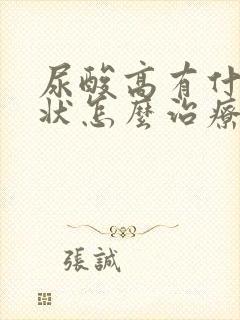 尿酸高有什
状怎麼治療
張誠